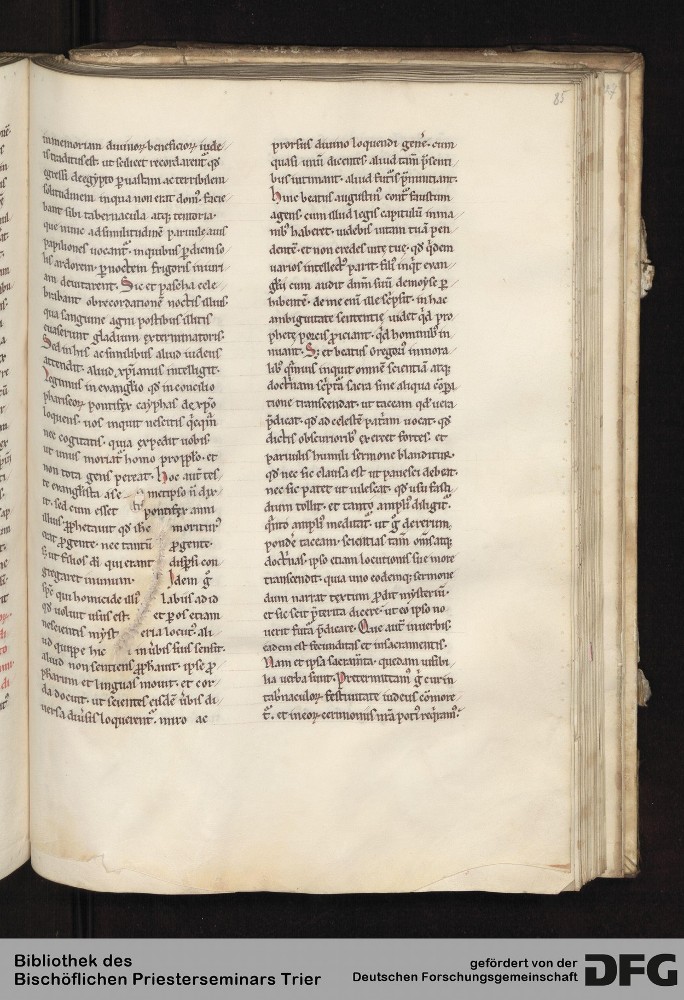 85
in memoriam diuinoꝝ beneficioꝝ iude
is traditus est. ut scilicet recordarent᷑. qđ
egressi de egypto ꝑ uastam ac terribilem
solitudinem in qua non erat dom᷒. facie
bant sibi tabernacula atq; tentoria.
que nunc ad similitudinē parue auis
papiliones uocant᷑. in quibus ꝑ diem so
lis ardorem. ꝑ noctem frigoris iniuri
am deuitarent. Sic et pascha cele
brabant ob recordationē noctis illius.
qua sanguine agni postibus illitis
euaserunt gladium exterminatoris.
Sed in his ac similibus aliud iudeus
attendit. aliud xp̄ianus intelligit.
Legimus in euangłio qđ in concilio
phariseoꝝ pontifex cayphas de xp̄o
loquens. uos inquit nescitis q̇cq̄m
nec cogitatis. quia expedit uobis
ut unus moriat᷑ homo pro pp̄lo. et
non tota gens pereat. hoc aut̄ tes
te euangłista a se metipso n̄ dix
it. sed cum esset pontifex anni
illius ꝓphetauit qđ ih̄c moritur᷒
erat ꝓ gente. nec tantū ꝓ gente.
s; ut filios di qui erant disp̄si con
gregaret in unum. Idem g̊
sp̄c qui homicide illi᷒ labiis ad id
qđ uoluit usus est. et ꝑ os etiam
nescientis myst eria locut᷒. ali
ud quippe hic in ūbis suis sensit.
aliud non sentiens ꝓphauit. ipse ꝓ
pharum et linguas mouit. et cor
da docuit. ut scientes eisdē ūbis di
uersa diu̇sis loquerent᷑. miro ac
prorsus diuino loquendi geńe. cum
quasi unū dicentes. aliud tam̄ p̄senti
bus intimant. aliud futuris p̄nuntiant.
Hinc beatus augustin᷒ cont̄ faustum
agens. cum illud legis capitulū in ma
nib᷒ haberet. uidebis uitam tuā pen
dentē. et non credes uite tue. qđ q̇dem
uarios intellect᷒ parit. fili᷒ inq̇t euan
glii cum audit dn̄m suū. de moyse ꝑ
hibentē. de me eni ille sc̄psit. in hac
ambiguitate sententie uidet qđ pro
phete porcis ꝓiciant. qđ hominib᷒ in
nuant. S; et beatus Gregori᷒ in mora
lib᷒ q̄muis inquit omnē scientiā atq;
doct̄nam sc̄pt̄a sacra sine aliqua cōpa
tione transcendat. ut taceam qđ uera
p̄dicat. qđ ad celestē pat̄am uocat. qđ
dictis obscuriorib᷒ exercet fortes. et
paruulis humili sermone blanditur.
qđ nec sic clausa est ut pauesci debeat.
nec sic patet ut uilescat. qđ usu fasti
dium tollit. et tanto ampli᷒ diligit᷑.
q̄nto ampli᷒ meditat᷑. ut g̊ de rerum
pondē taceam. scientias tam̄ om̄s atq;
doct̄nas. ipso etiam locutionis sue more
transcendit. quia uno eodemq; sermone
dum narrat textum ꝓdit mysteriū.
et sic scit p̄terita dicere. ut eo ipso no
uerit futura p̄dicare. Que aut̄ in uerbis.
eadem est fecunditas et in sacramentis.
Nam et ipsa sacram̄ta. quedam uisibi
lia uerba sunt. Pretermittam᷒ g̊ cur in
tab̄naculoꝝ festiuitate iudeus cōmore
t᷑. et in eoꝝ cerimoniis nr̄a poti᷒ req̇ram᷒.
Bibliothek des
Bischöflichen Priesterseminars Trier
gefördert von der
Deutschen Forschungsgemeinschaft
DFG